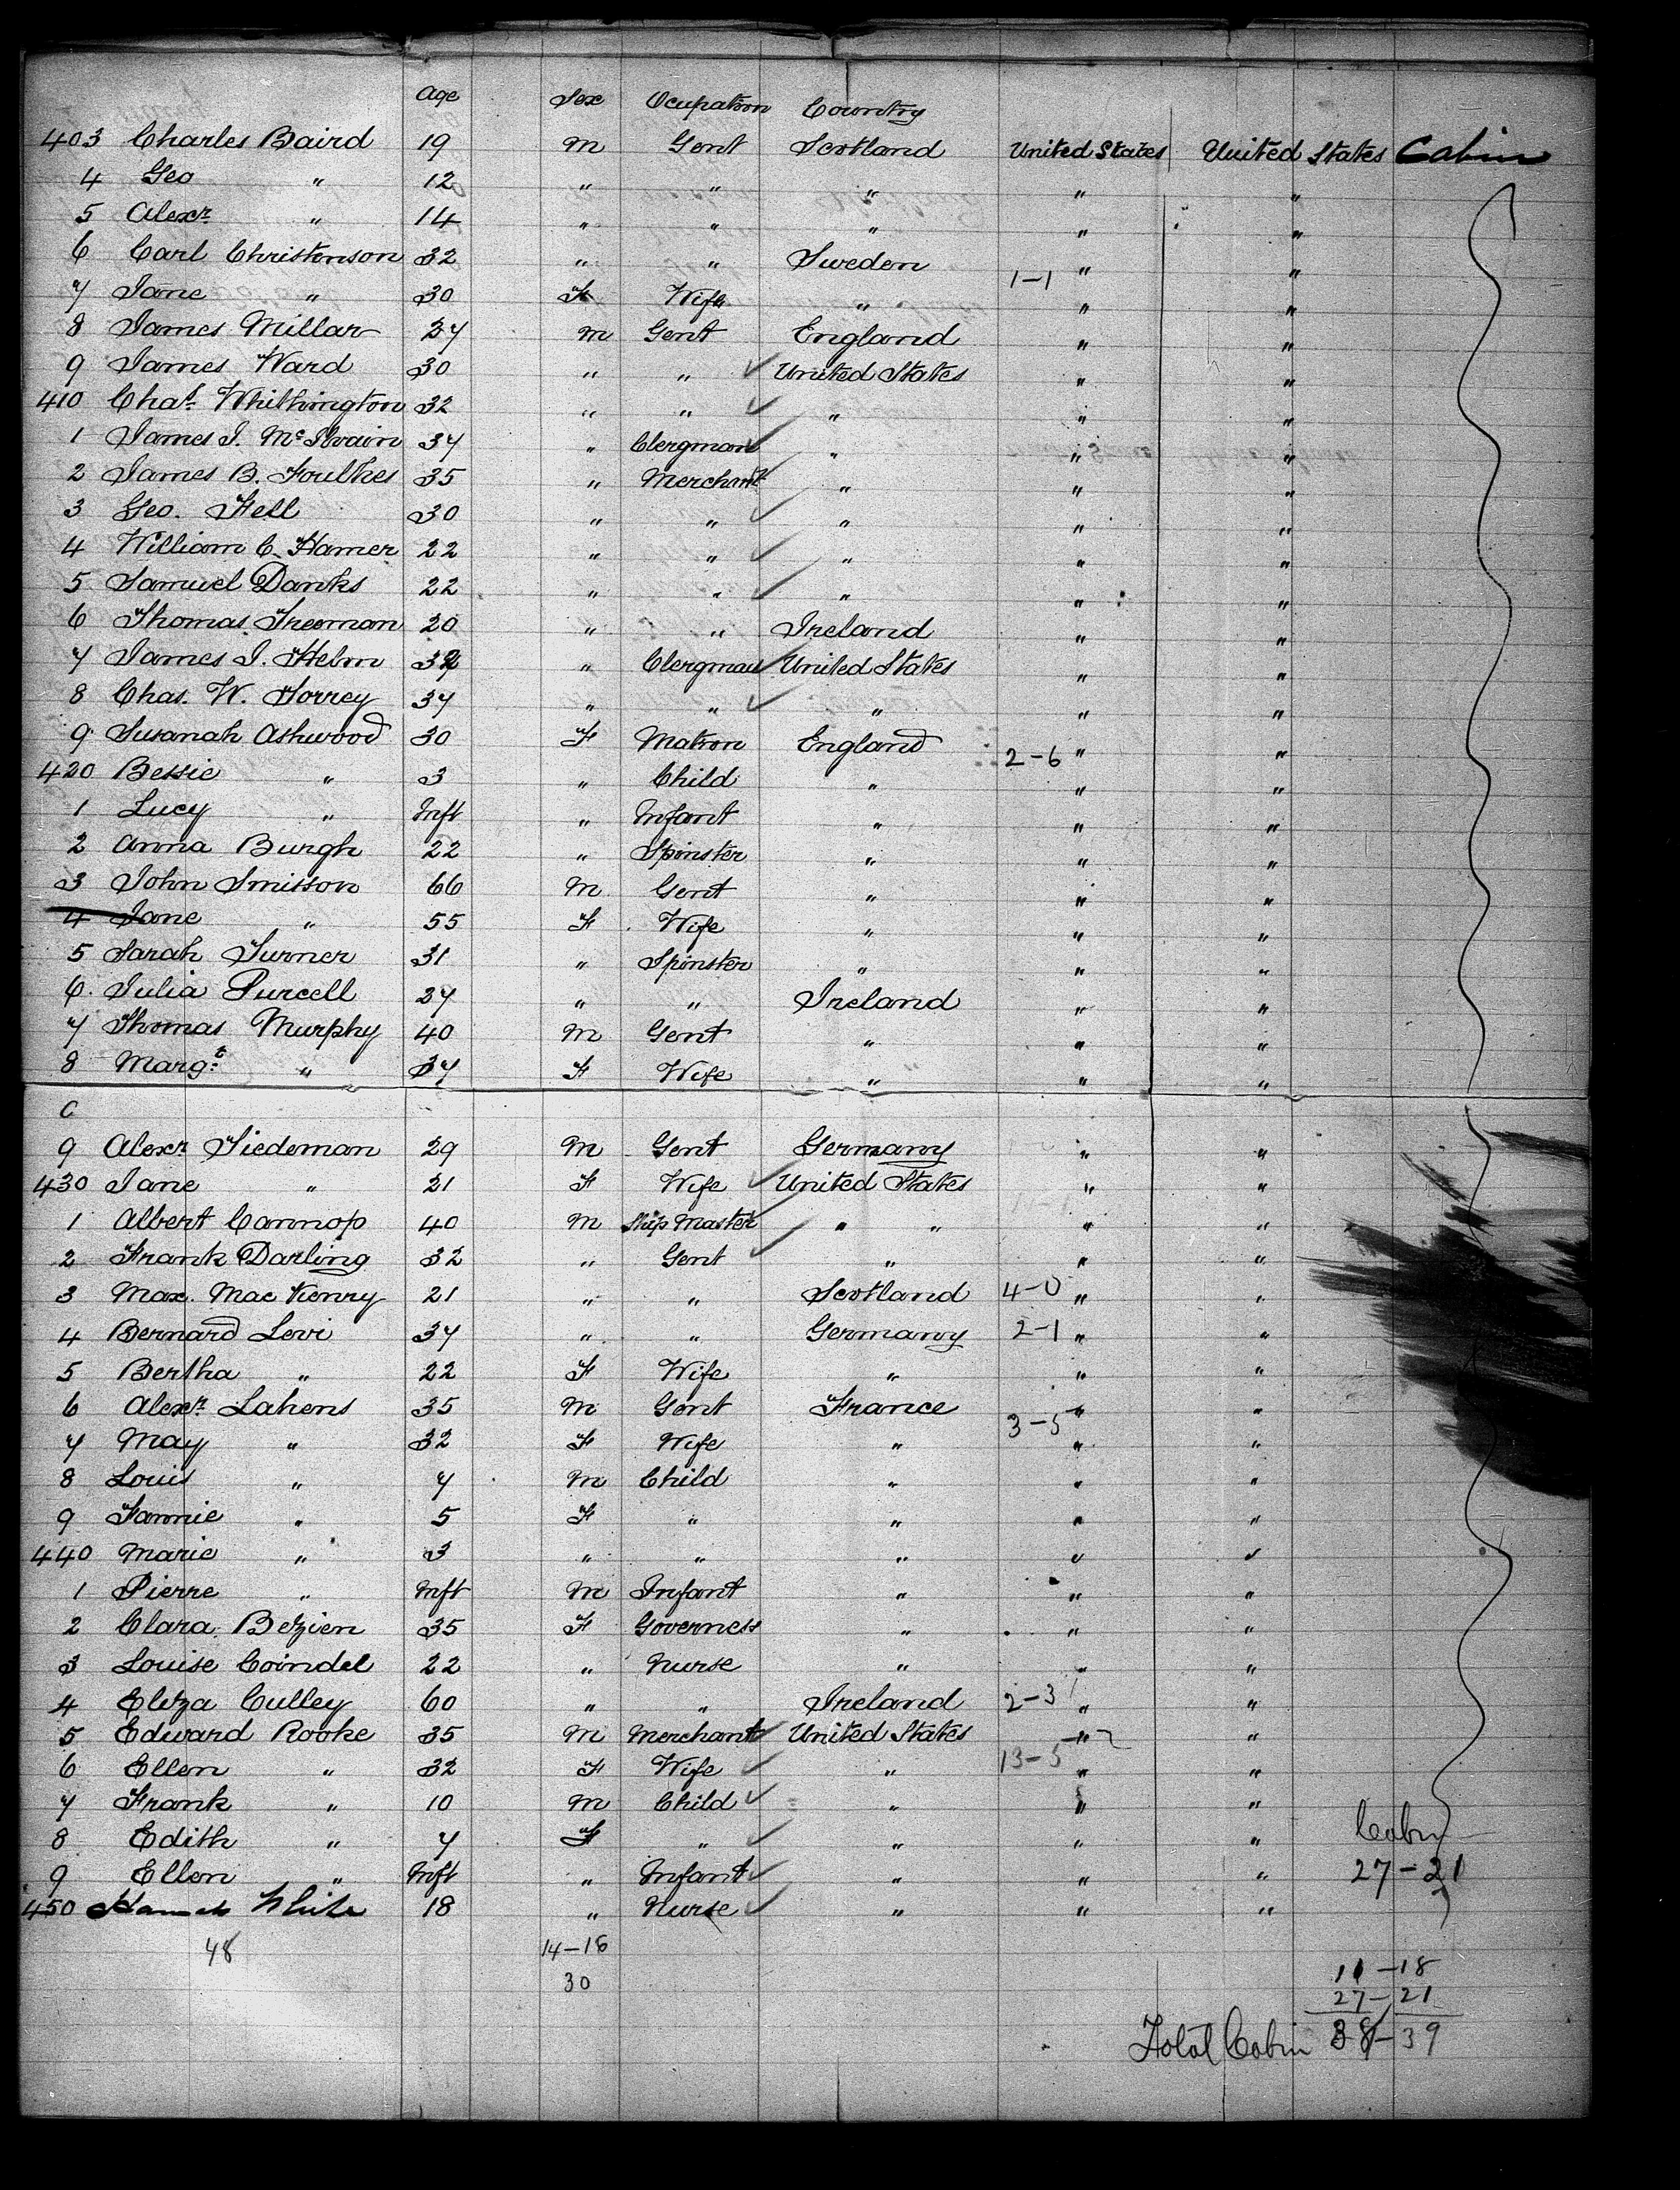 Age Sex Ocupation Country
403 Charles Baird 19 M Gent Scotland United States United States Cabin
4 Geo " 12 " " " " "
5 Alexr " 14 " " " " "
6 Carl Christenson 32 " " Sweden 1-1 " "
7 Jane " 30 F Wife " " "
8 James Millar 27 M Gent England " "
9 James Ward 30 " " ✓ United States " "
410 Chas. Whithington 32 " " ✓ " " "
1 James J. McIlvain 37 " Clergman ✓ " " "
2 James B. Foulkes 35 " Merchant ✓ " " "
3 Geo. Fell 30 " " ✓ " " "
4 William C. Hamer 22 " " ✓ " " "
5 Samuel Danks 22 " " ✓ " " "
6 Thomas Freeman 20 " " Ireland " "
7 James J. Helm " Clergman ✓ United States " "
8 Chas. W. Torrey 37 " " ✓ " " "
9 Susanah Ashwood 30 F Matron England 2-6 " "
420 Bessie " 3 " Child " " "
1 Lucy " Inft " Infant " " "
2 Anna Burgh 22 " Spinster " " "
3 John Smisson 66 M Gent " " "
4 Jane " 55 F Wife " " "
5 Sarah Turner 31 " Spinster " " "
6 Julia Purcell 27 " " Ireland " "
7 Thomas Murphy 40 M Gent " " "
8 Margt " 37 F Wife " " "
C
9 Alexr Tiedeman 29 M Gent Germany " "
430 Jane " 21 F Wife ✓ United States " "
1 Albert Cannop 40 M Ship Master ✓ " " " "
2 Frank Darling 32 " Gent ✓ " " "
3 Max. Mac Kenry 21 " " Scotland 4-0 " "
4 Bernard Levi 37 " " Germany 2-1 " "
5 Bertha " 22 F Wife " " "
6 Alexr Lahens 35 M Gent France 3-5 " "
7 May " 32 F Wife " " "
8 Louis " 7 M Child " " "
9 Fannie " 5 F " " " "
440 Marie " 3 " " " " "
1 Pierre " Inft M Infant " " "
2 Clara Bezien 35 F Governess " " "
3 Louise Coindel 22 " Nurse " " "
4 Eliza Culley 60 " " Ireland 2-3 " "
5 Edward Rooke 35 M Merchant ✓ United States " "
6 Ellen " 32 F Wife ✓ " 13-5 " "
7 Frank " 10 M Child ✓ " " "
8 Edith " 7 F " ✓ " " " Cabin
9 Ellen " Inft " Infant ✓ " " " 27-21
450 White 18 " Nurse ✓ " " "
48 14-16
30
11-18
27-21
Total Cabin 38-39